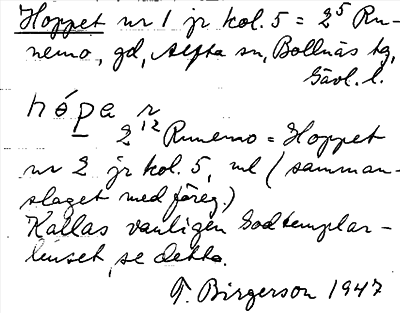 Hoppet nr 1 jr kol. 5 = 2⁵ Ru-
nemo, gd, Alfta sn, Bollnäs tg,
Gävl. l.
hópa r
2¹² Runemo = Hoppet
nr 2 jr kol. 5, ml (samman-
slaget med föreg.)
Kallas vanligen Godtemplar-
huset, se detta.
T. Birgerson 1947